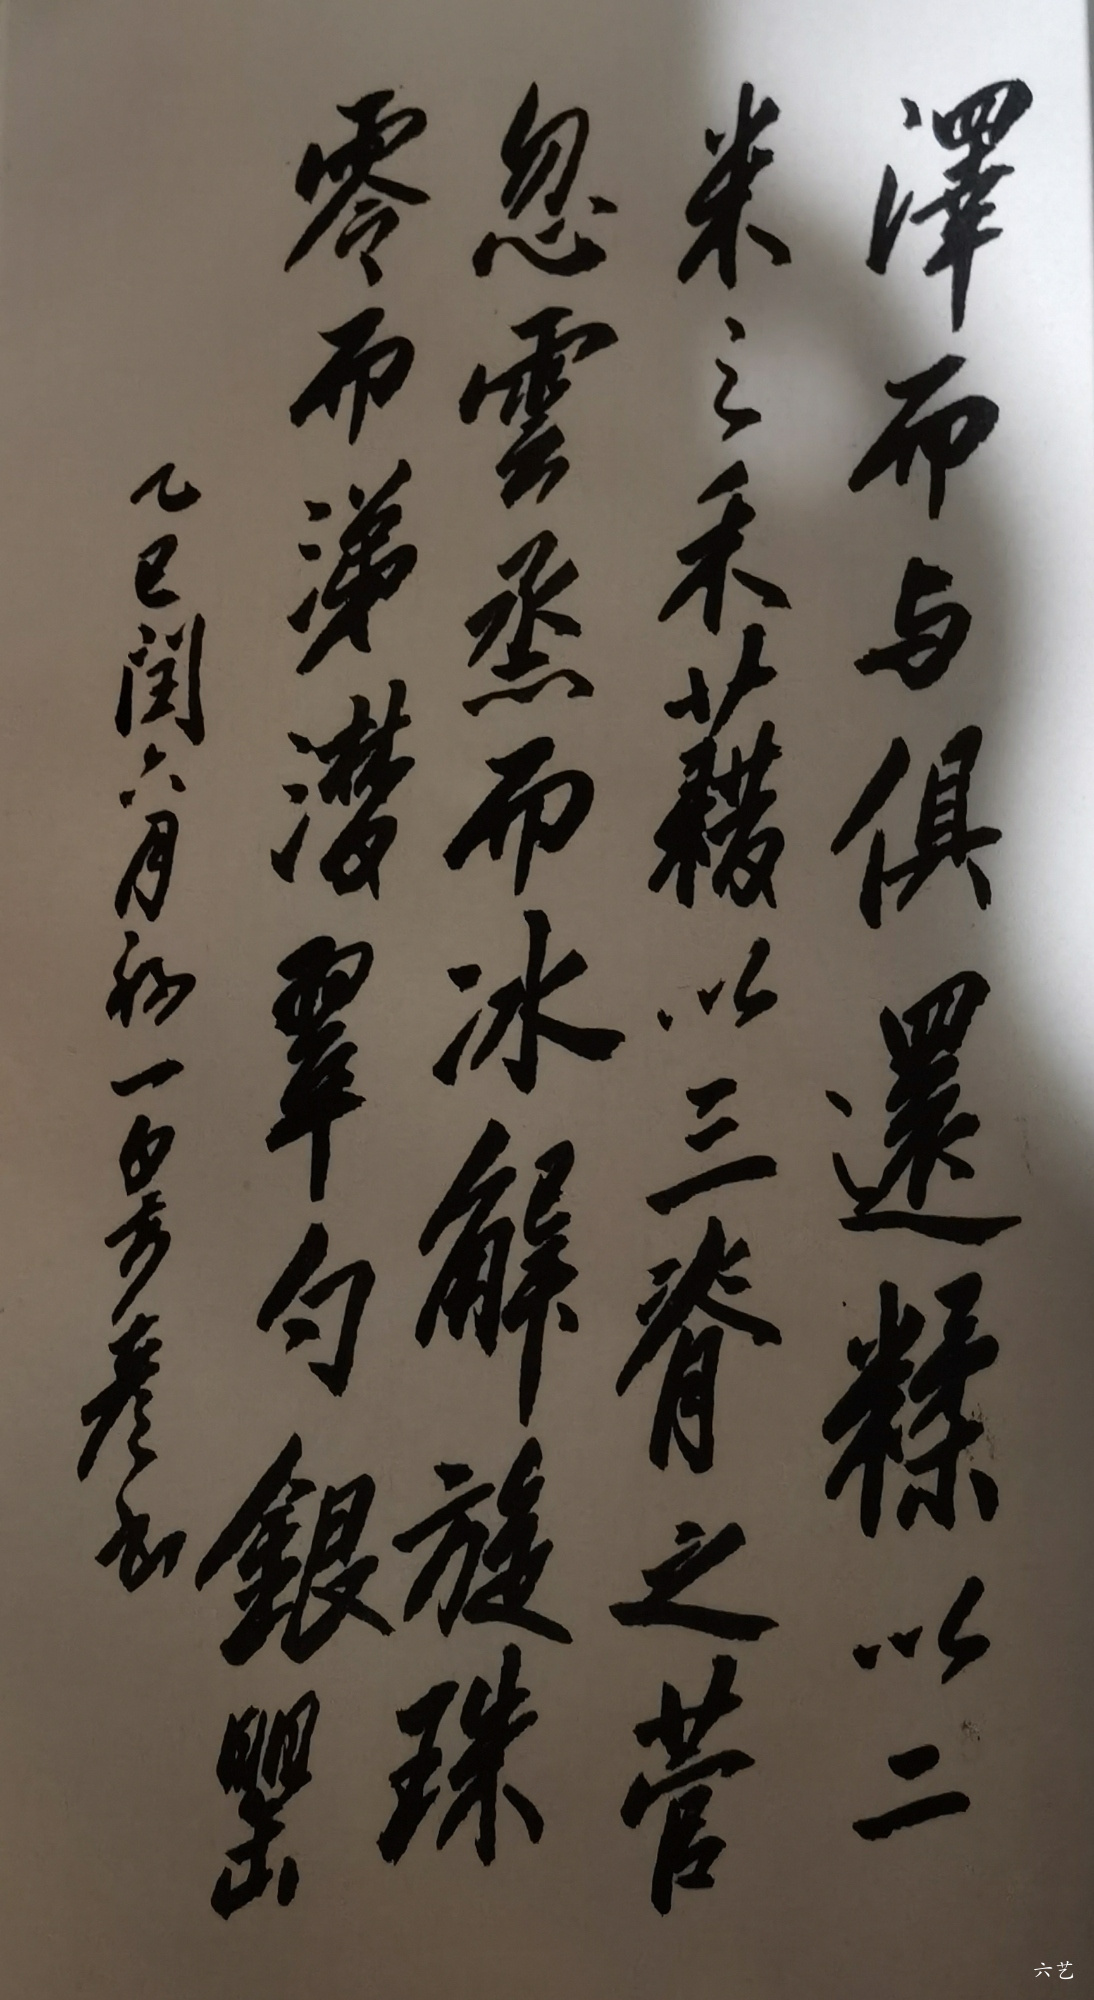 澤而与俱還糅以二
米之禾藉以三脊之菅
忽雲烝而冰解旋珠
零而涕潸翠勺銀罌
乙巳闰六月初一日
六艺